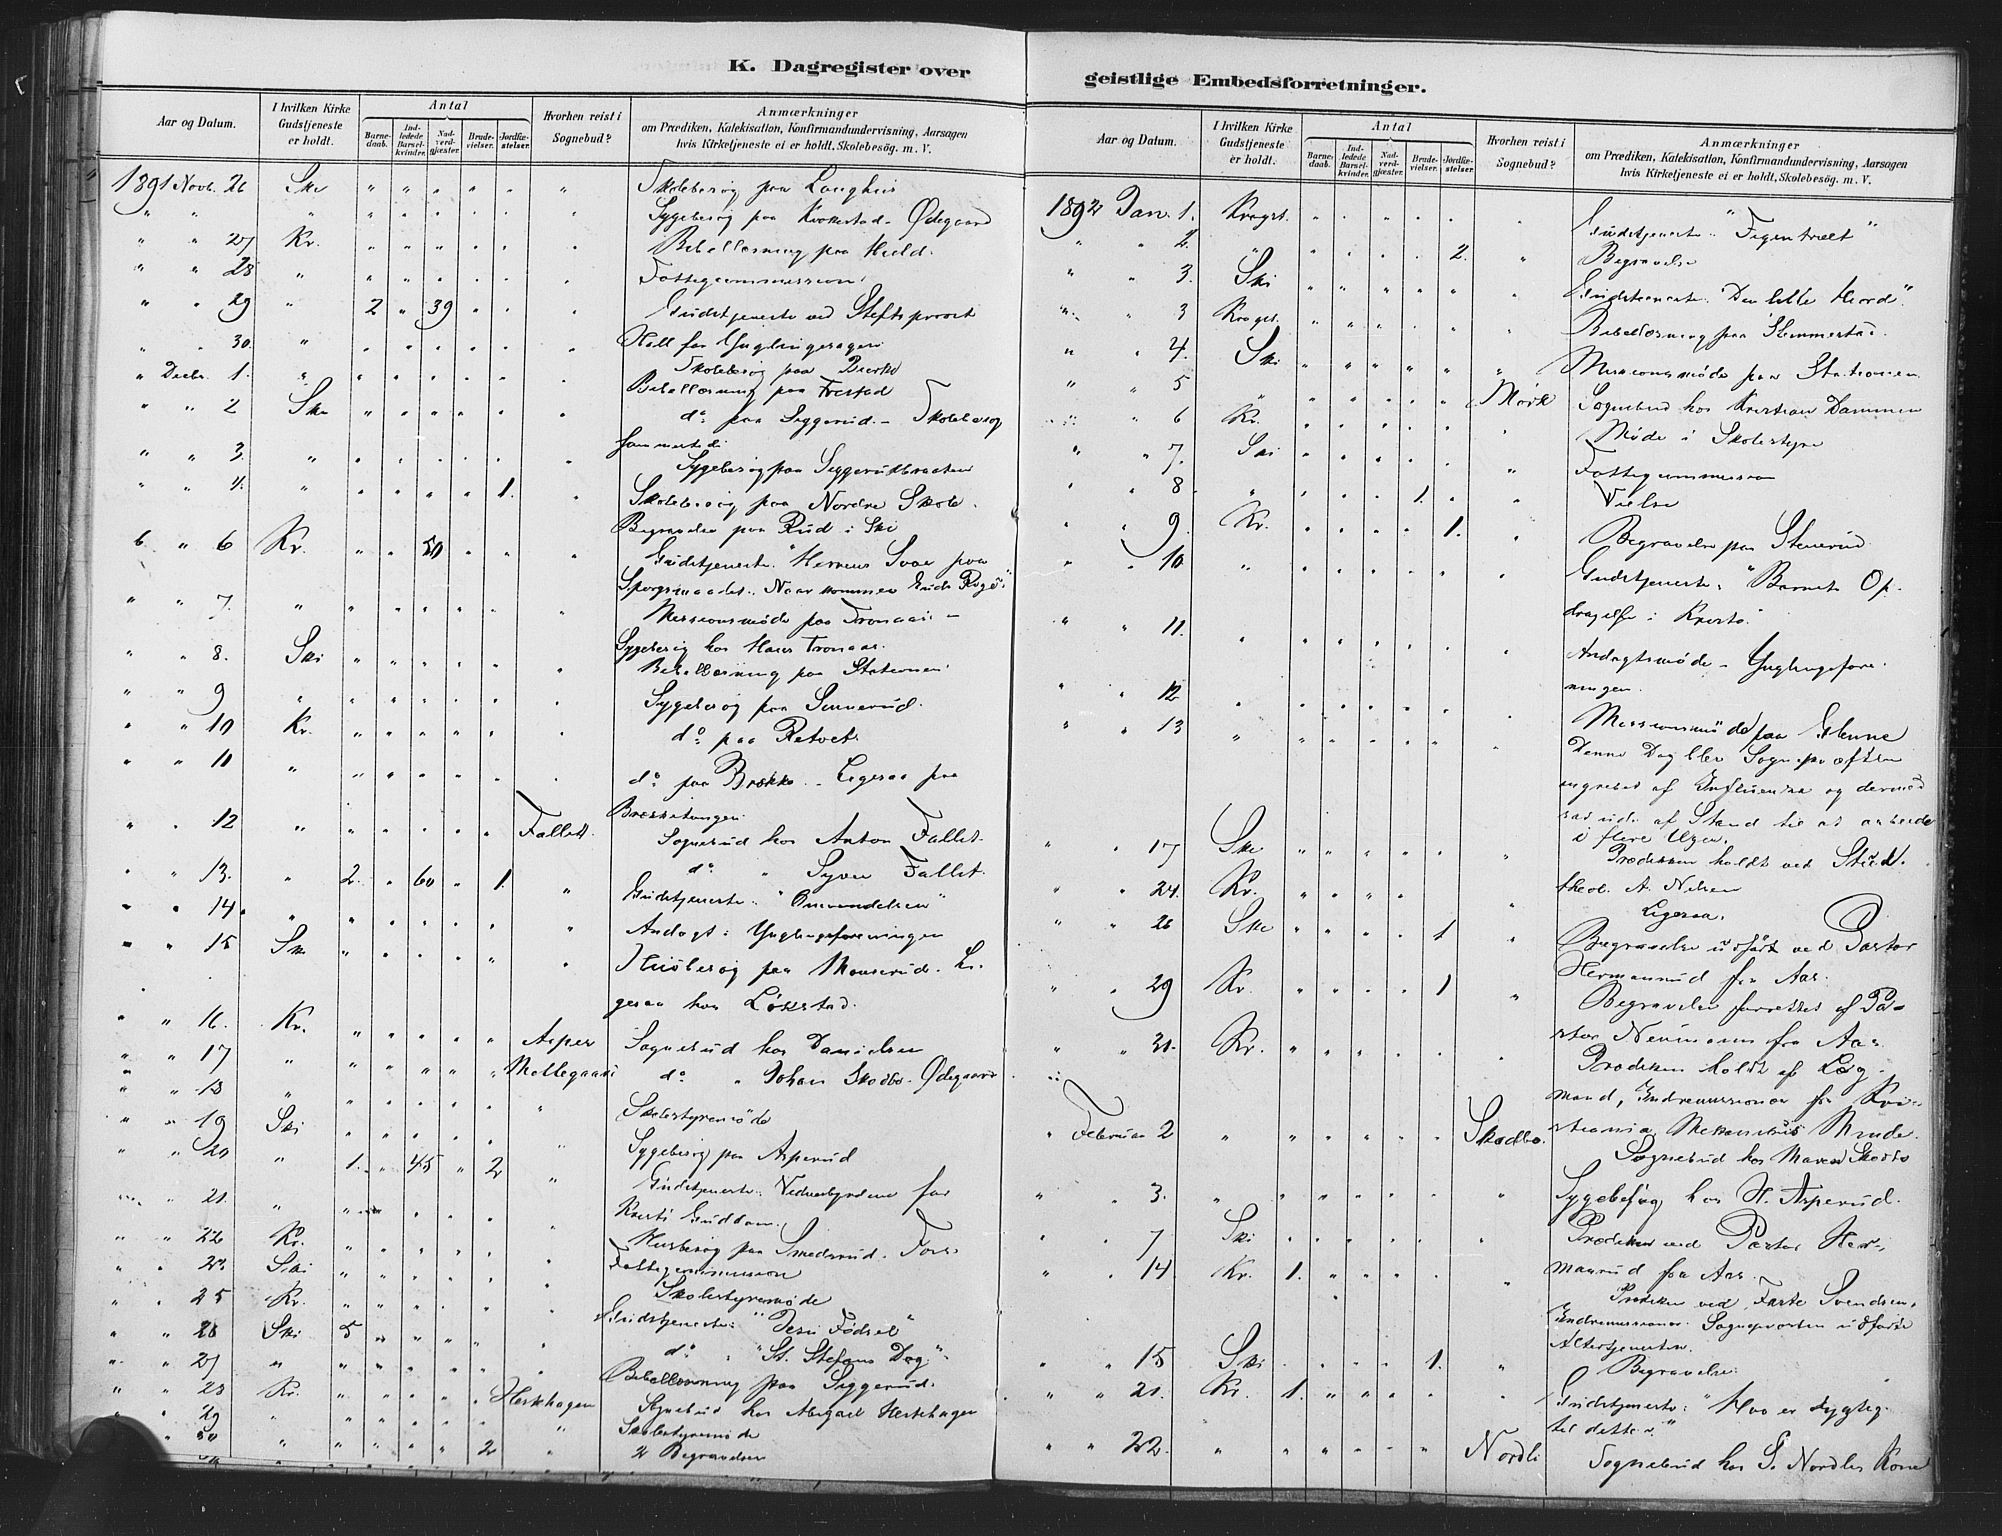 K. Dagregister over
Aar og Datum.
I hvilken Kirke Gudstjeneste er holdt.
Antal
Barnedaab.
Indledede Barselkvinder.
Nadverdgjæster.
Brudevielser.
Jordfæstelser.
Hvorhen reist i Sognebud?
Anmærkninger
om Prædiken, Katekisation, Konfirmandundervisning, Aarsagen
hvis Kirketjeneste ei er holdt, Skolebesøg. m. V.
1891 Novb. 26 Ski " " " " " " Skolebesøg paa Langhus
" " " " " " " " " Sygebesøg paa Ødegaard
" " 27 Kr. " " " " " " Bibellæsning paa
" " 28 " " " " " " " Fattigcommission
" " 29 " 2 " 39 " " " Gudstjeneste ved Stiftsprovst
" " 30. " " " " " " " Holdt for Ynglingesagen
" Decbr. 1. " " " " " " " Skolebesøg paa
Bibellæsning paa
" " 2 Ski " " " " " " do paa Siggerud. - Skolebesøg
sammesteds
" " 3. " " " " " " " Sygebesøg paa
" " 4. " " " " " 1. " Skolebesøg paa Nordre Skole.
Begravelse paa Rud i Ski
6 " 6 Kr. " " 50 " " " Gudstjeneste. "Herrens Svar paa
Spørgsmaalet: Naar kommer Guds Rige"
" " 7. " " " " " " " Missionsmøde paa Tronaas -
Sygebesøg hos Hans Tronaas.
" " 8. Ski " " " " " " Bibellæsning paa Stationen
" " 9 " " " " " " " Sygebesøg paa
" " 10 Kr. " " " " " " do paa Retvet
" " 11 " " " " " " " do paa Brekke - Ligesaa paa
" " 12 " " " " " " Fallet. Sognebud hos Anton Fallet.
" " 13. " 2. " 60 " 1. " do " Syver Fallet.
Gudstjeneste. "Omvendelsen"
" " 14. " " " " " " " Andagt i Ynglingeforeningen
" " 15 Ski " " " " " " Husbesøg paa Li-
gesaa hos Løkstad.
" " 16. Kr. " " " " " Asper Sognebud hos Danielsen
" " 17 " " " " " " Mellegaard do " Johan Skodbo. Ødegaard
" " 18 " " " " " " " Skolestyremøde
" " 19 Ski " " " " " " Sygebesøg paa Asperud
" " 20 " 1. " 45 " 2 " Gudstjeneste: Vidnesbyrdene for
Kristi Guddom.
" " 21. " " " " " " " Husbesøg paa Smedsrud.
" " 22 Kr. " " " " " " Fattigcommission
" " 23 Ski " " " " " " Skolestyremøde
" " 25 Kr. " " " " " " Gudstjeneste: "Jesu Fødsel"
" " 26 Ski 5 " " " " " do "St. Stefans Dag".
" " 27 " " " " " " " Bibellæsning paa Siggerud.
" " 28 Kr. " " " " " Heskhagen Sognebud hos Abigael Heskhagen
" " 29 " " " " " " " Skolestyremøde
" " 30 " " " " " 2 " 2 Begravelser
geistlige Embedsforretninger.
Aar og Datum.
I hvilken Kirke Gudstjeneste er holdt.
Antal
Barnedaab.
Indledede Barselkvinder.
Nadverdgjæster.
Brudevielser.
Jordfæstelser.
Hvorhen reist i Sognebud?
Anmærkninger
om Prædiken, Katekisation, Konfirmandundervisning, Aarsagen
hvis Kirketjeneste ei er holdt, Skolebesøg. m. V.
1892 Jan. 1. Krogst. " " " " " " Gudstjeneste. "Figentræet"
" " 2. " " " " " 2. " Begravelse
" " 3. Ski " " " " " " Gudstjeneste. "Den lille Hjord".
" " 3 Krogst. " " " " " " Bibellæsning paa
" " 4. Ski " " " " " " Missionsmøde paa Stationen
" " 5 " " " " " " Mørk Sognebud hos Kristian Dammen
" " 6 Kr. " " " " " " Møde i Skolestyre
" " 7. Ski " " " " " " Fattigcommission
" " 8 " " " " 1. " " Vielse
" " 9. Kr. " " " " 1. " Begravelse paa Stenerud
" " 10 " " " " " " " Gudstjeneste. "Barnets Op-
dragelse i Kristo.
" " 11. " " " " " " " Andagtsmøde - Ynglingefore-
ningen.
" " 12 " " " " " " " Missionsmøde paa Glenne
" " 13 " " " " " " " Denne Dag blev Sognepræsten
angrebet af Influensa og dermed
sat ud af Stand til at arbeide
i flere Uger.
" " 17 Ski " " " " " " Prædiken holdt ved Stud.
theol. A. Nilsen
" " 24. Kr. " " " " " " Ligesaa.
" " 26 Ski " " " " 1 " Begravelse udført ved Pastor
Hermanrud fra Aas.
" " 29 Kr. " " " " 1 " Begravelse forrettet af Pa-
stor Neumann fra Aas
" " 31. Kr. " " " " " " Prædiken holdt af Læg-
mand, Indremissionær fra Kri-
stiania
" Februar 2 " " " " " " Skodbo. Sognebud hos Maren Skodbo
" " 3. " " " " " " " Sygebesøg hos H. Asperud.
" " 7 Ski " " " " " " Prædiken ved Pastor Her-
manrud fra Aas.
" " 14 Kr. 1. " " " " " Prædiken ved Svendsen,
Indremissionær. Sognepræsten udførte
Altertjenesten.
" " 15 Ski " " " " 1. " Begravelse.
" " 21. Kr. 1. " " " " " Gudstjeneste: "Hvo er dygtig
til dette?"
" " 22. " " " " " " Nordli Sognebud hos S. Nordlis Kone